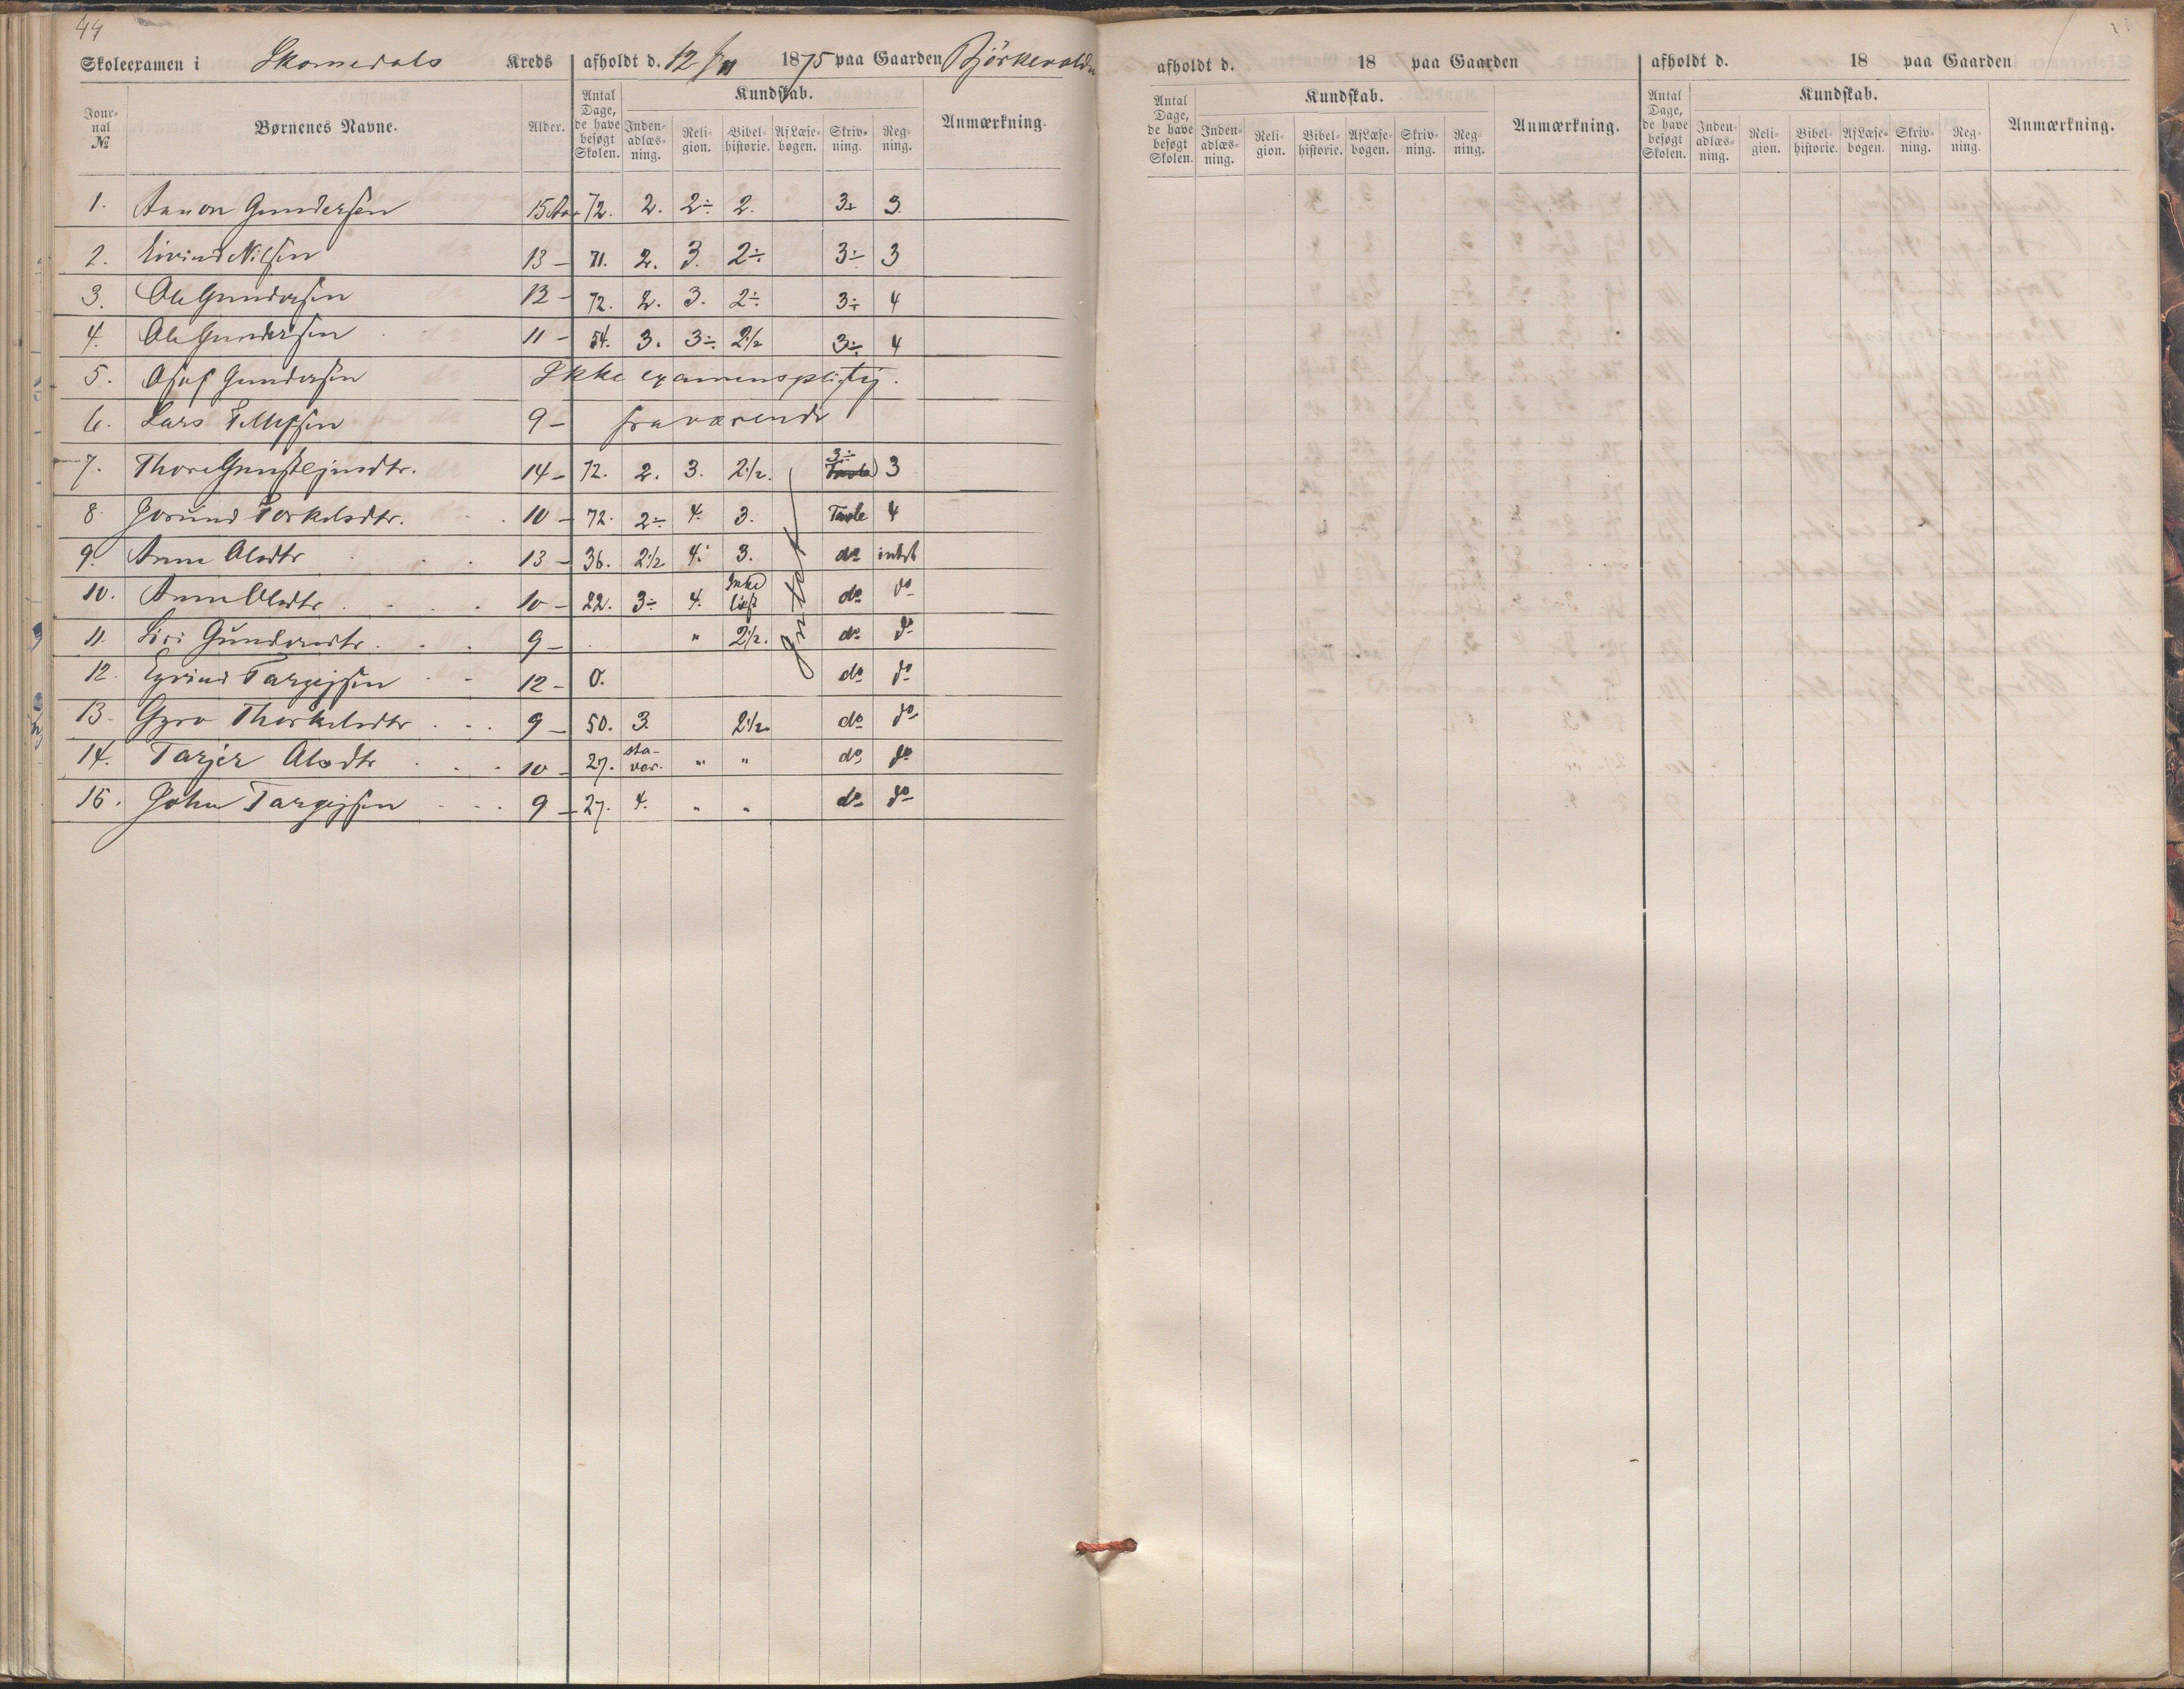 44
Skoleexamen i Skomedals Kreds afholdt d. 12/11 1875 paa Gaarden
Jour-nal № Børnenes Navne. Alder. Antal Dage, de have besøgt Skolen. Kundskab. Inden-adlæs-ning. Reli-gion. Bibel-historie. AfLæse-bogen. Skriv-ning. Reg-ning. Anmærkning.
1. Aanon Gundersen 15 Aar 72. 2. 2÷ 2. 3+ 3.
2. Eivind Nilsen 13 - 71. 2. 3. 2÷ 3÷ 3
3. Ole Gundersen 12 - 72. 2. 3. 2÷ 3÷ 4
4. Ole Gundersen 11 - 54. 3. 3÷ 2½ 3÷ 4
5. Gundersen Ikke examenspligtig.
6. Lars Tellefsen 9 - fraværende
7. Thore Gunsteinsdtr. 14 - 72. 2. 3. 2½. 3÷ Tavle 3
8. Jorund Torkelsdtr. 10 - 72. 2÷ 4. 3. Tavle 4
9. Anne Olsdtr 13 - 36. 2½ 4. 3. do intet
10. Anne Olsdtr 10 - 22. 3÷ 4. Ikke læst do do
11. Siri Gundersdtr. 9 - " 2½. do do
12. Eyvind Targejsen 12 - 0. do do
13. Gyro Thorkelsdtr 9 - 50. 3. 2½ do do
14. Tarjer Olsdtr 10 - 27. sta-ver. " " do do
15. John Targejsen 9 - 27. 4. " " do do
Intet
afholdt d. 18 paa Gaarden
Antal Dage, de have besøgt Skolen. Kundskab. Inden-adlæs-ning. Reli-gion. Bibel-historie. AfLæse-bogen. Skriv-ning. Reg-ning. Anmærkning.
afholdt d. 18 paa Gaarden
Antal Dage, de have besøgt Skolen. Kundskab. Inden-adlæs-ning. Reli-gion. Bibel-historie. AfLæse-bogen. Skriv-ning. Reg-ning. Anmærkning.